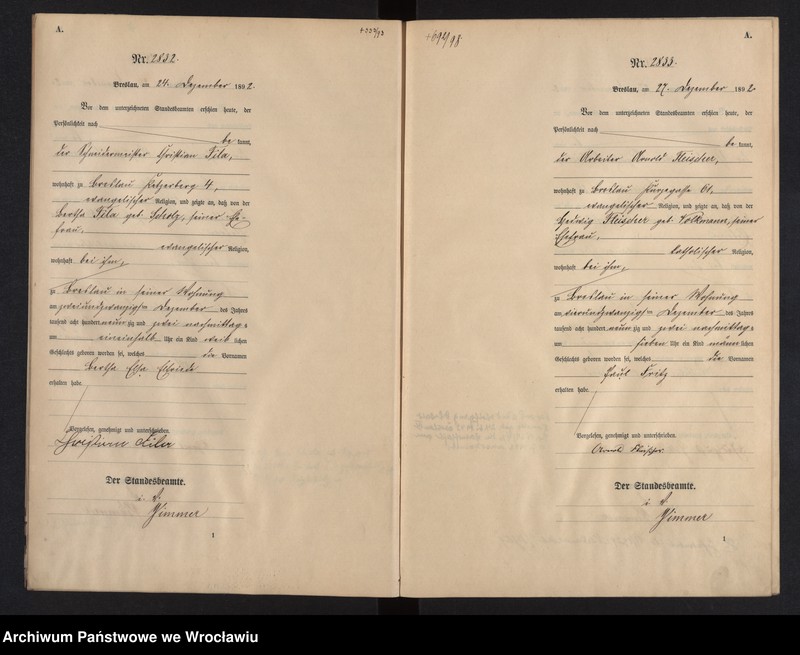 A.
Nr. 2832.
Breslau, am 24. Dezember 1892.
Vor dem unterzeichneten Standesbeamten erschien heute, der
Persönlichkeit nach
be kannt,
der Schneidermeister Christian
wohnhaft zu Breslau 4,
evangelischer Religion, und zeigte an, daß von der
Bertha geb. Scholz, seiner Ehe-
frau,
evangelischer Religion,
wohnhaft bei ihm,
zu Breslau in seiner Wohnung
am zweiundzwanzigsten Dezember des Jahres
tausend acht hundert neun zig und zwei nachmittags
um eineinhalb Uhr ein Kind weib lichen
Geschlechts geboren worden sei, welches die Vornamen
Bertha Elsa Elfriede
erhalten habe.
Vorgelesen, genehmigt und unterschrieben.
Christian
Der Standesbeamte.
i. V.
Zimmer
1
A.
Nr. 2833.
Breslau, am 27. Dezember 1892.
Vor dem unterzeichneten Standesbeamten erschien heute, der
Persönlichkeit nach
be kannt,
der Arbeiter Arnold Fleischer,
wohnhaft zu Breslau Kurzegasse 61,
evangelischer Religion, und zeigte an, daß von der
Hedwig Fleischer geb. Volkmann, seiner
Ehefrau,
katholischer Religion,
wohnhaft bei ihm,
zu Breslau in seiner Wohnung
am vierundzwanzigsten Dezember des Jahres
tausend acht hundert neun zig und zwei nachmittags
um sieben Uhr ein Kind männ lichen
Geschlechts geboren worden sei, welches die Vornamen
Paul Fritz
erhalten habe.
Vorgelesen, genehmigt und unterschrieben.
Arnold Fleischer.
Der Standesbeamte.
i. V.
Zimmer
1
Archiwum Państwowe we Wrocławiu